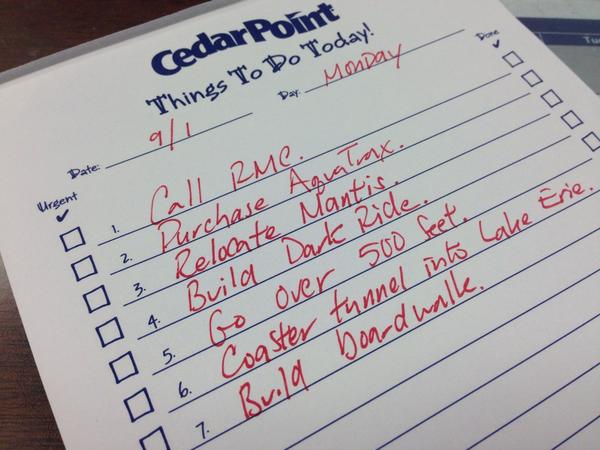 CedarPoint
Things To Do Today!
Date: 9/1 Day: Monday
Urgent Done
1. Call RMC.
2. Purchase AquaTrax.
3. Relocate Mantis.
4. Build Dark Ride.
5. Go over 500 feet.
6. Coaster tunnel into Lake Erie.
7. Build boardwalk.